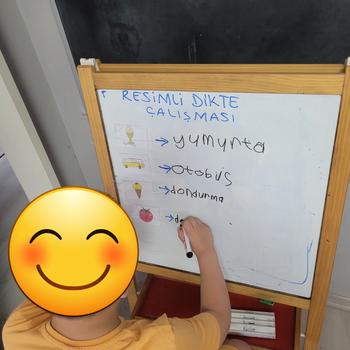 RESİMLİ DİKTE
ÇALIŞMASI
yumynta
otobüs
dondurma